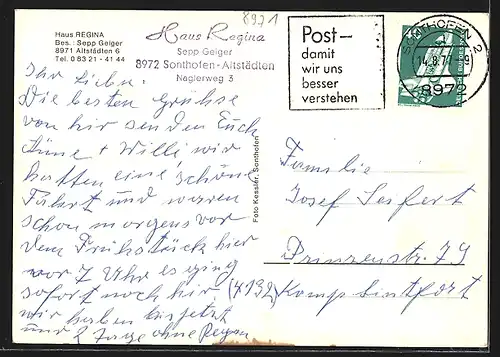 Haus REGINA
Bes.: Sepp Geiger
8971 Altstädten 6
Tel. 0 83 21 - 41 44
8971
Haus Regina
Sepp Geiger
8972 Sonthofen-Altstädten
Naglerweg 3
Post–
damit
wir uns
besser
verstehen
SONTHOFEN 2
8972
Ihr Lieben.
Die besten Grüße
von hir senden Euch
Änne + Willi wir
hatten eine schöne
Fahrt und waren
schon morgens vor
dem Frühstück hier
vor 7 Uhr es ging
sofort noch hir
wir haben bis jetzt
und 2 Tage ohne Regen
Foto Kessler, Sonthofen
Familie
Josef Seifert
Prinzenstr. 79
(4132) Kamp Lintfort